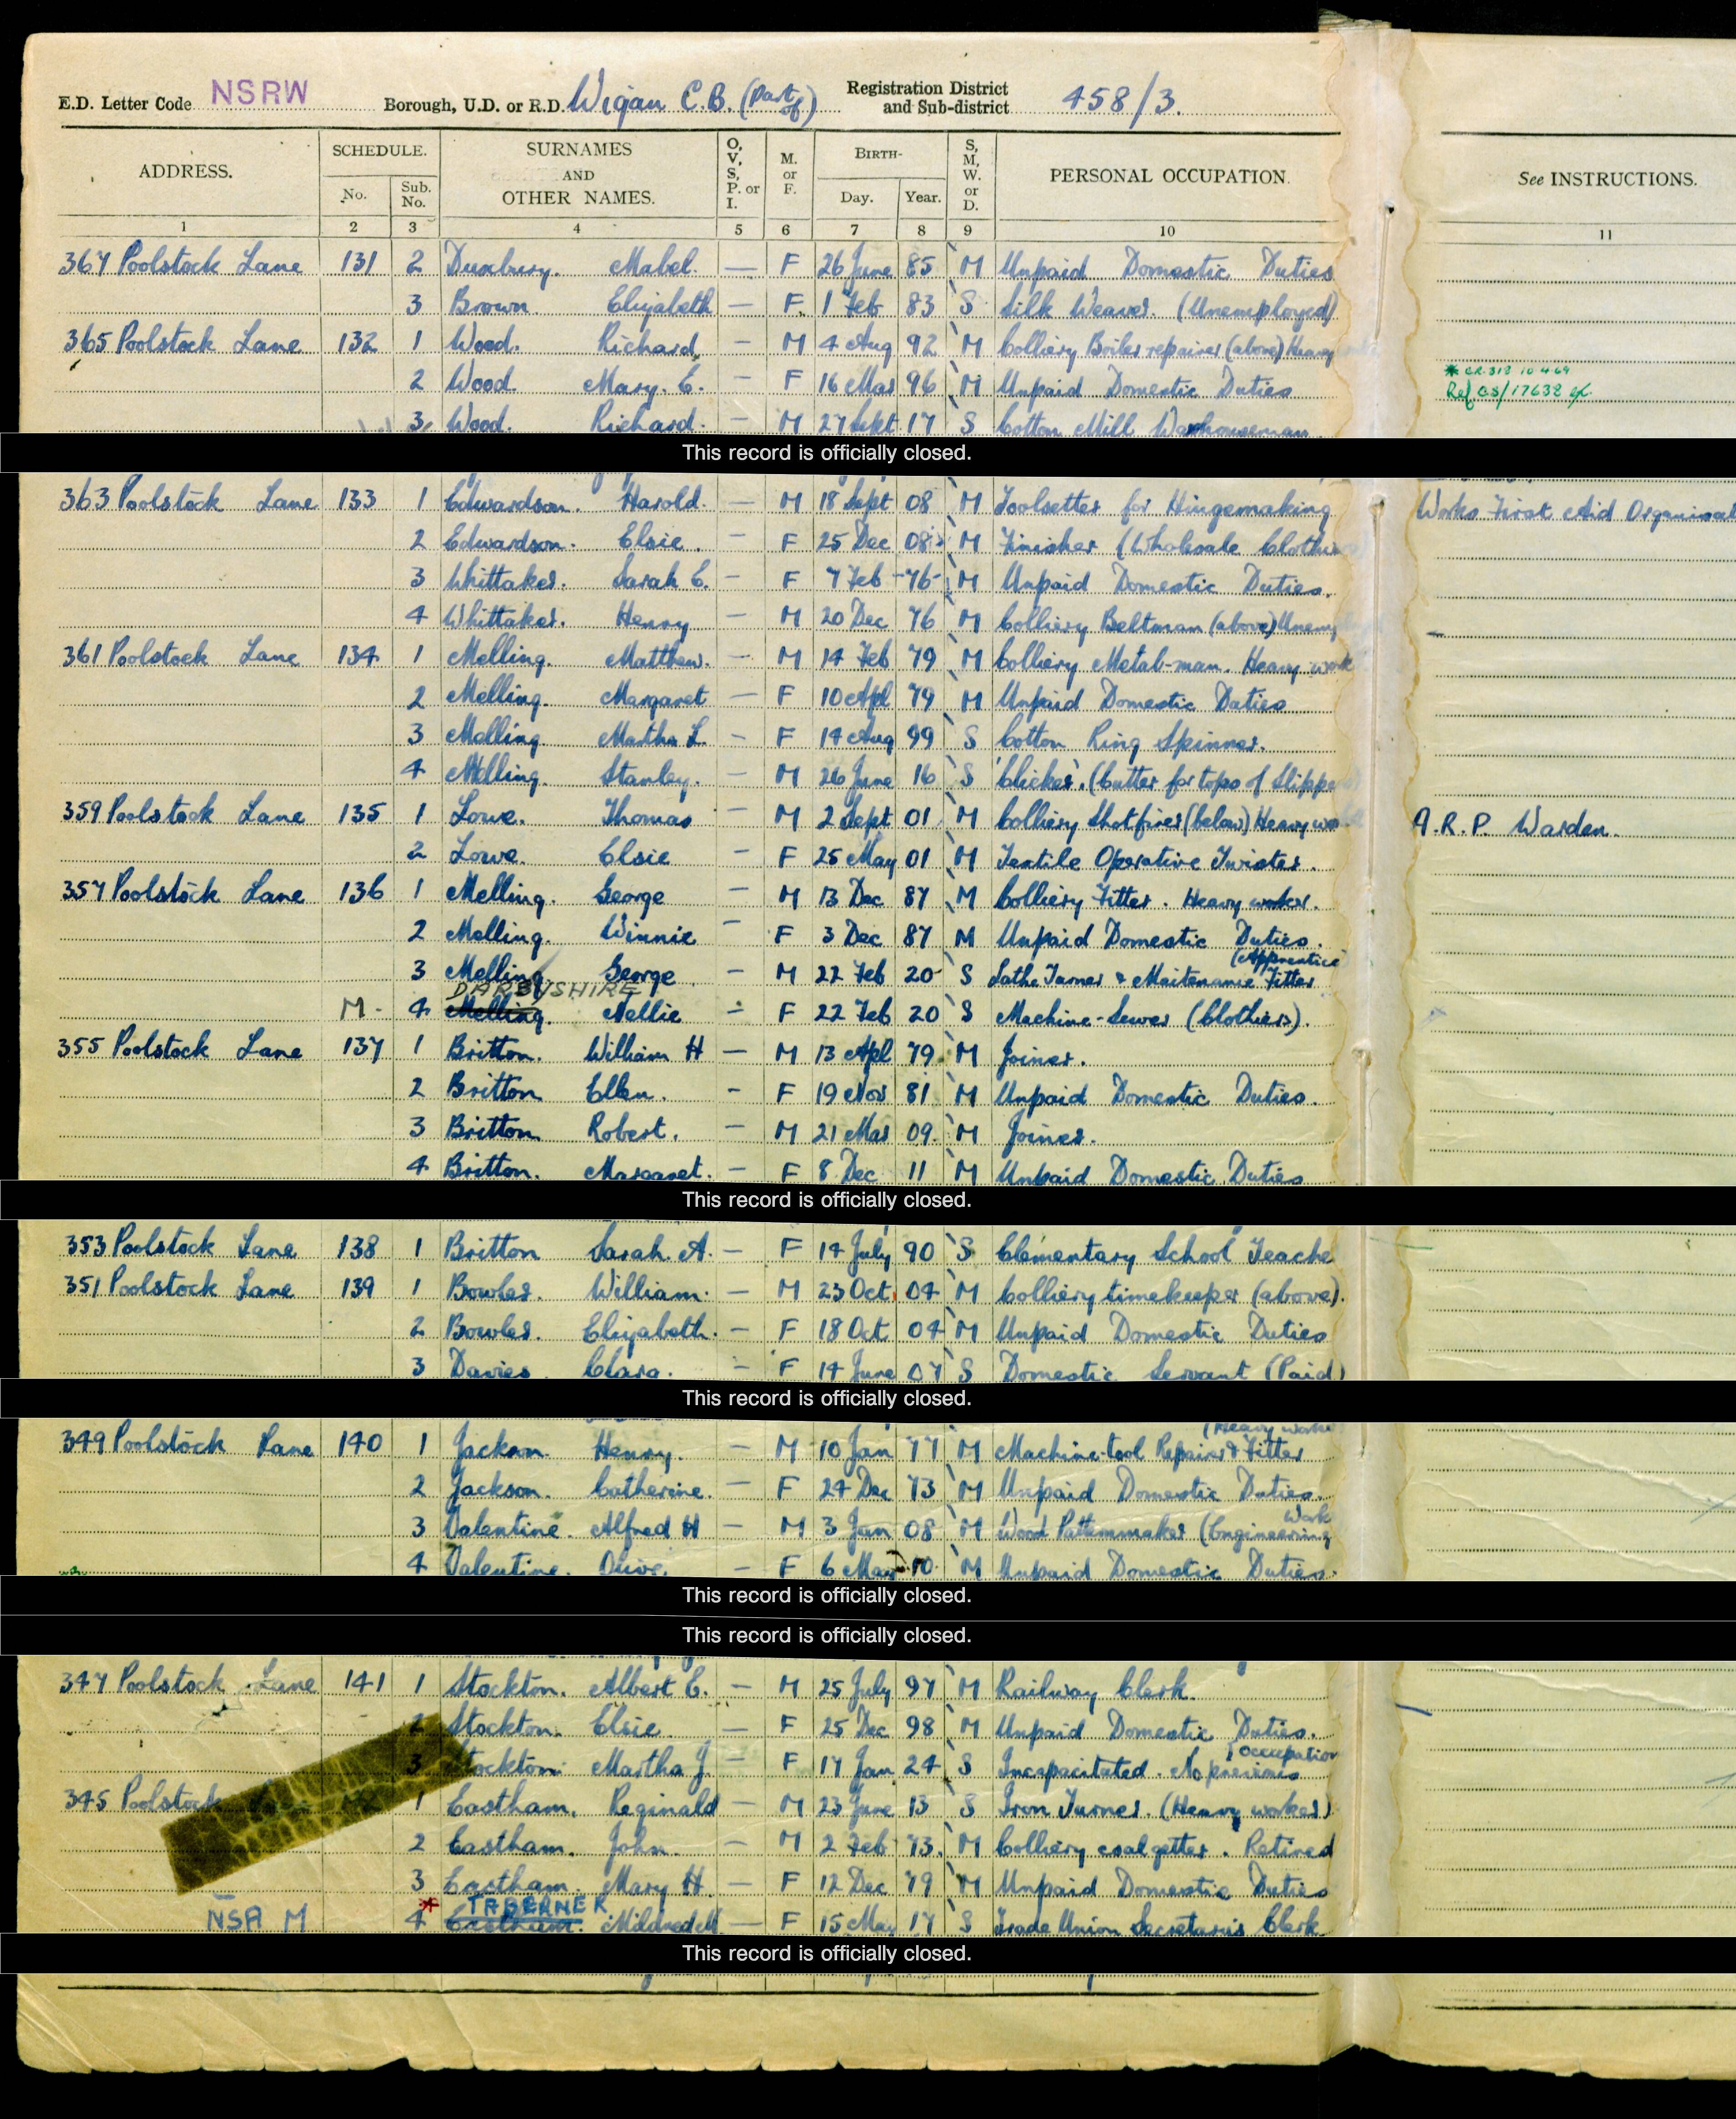 E.D. Letter Code NSRW Borough, U.D. or R.D. Wigan C.B. (Part of) Registration District and Sub-district 458/3.
ADDRESS. SCHEDULE. No. Sub. No. SURNAMES AND OTHER NAMES. O, V, S, P. or I. M. or F. BIRTH- Day. Year. S, M, W. or D. PERSONAL OCCUPATION. See INSTRUCTIONS.
1 2 3 4 5 6 7 8 9 10 11
367 Poolstock Lane 131 2 Duxbury. Mabel. — F 26 June 85 M Unpaid Domestic Duties
3 Brown. Elizabeth — F 1 Feb 83 S Silk Weaver. (Unemployed)
365 Poolstock Lane 132 1 Wood. Richard. — M 4 Aug 92 M Colliery Boiler repairer (above) Heavy
2 Wood. Mary. E. — F 16 Mar 96 M Unpaid Domestic Duties
3 Wood. Richard. — M 27 Sept 17 S Cotton Mill Warehouseman
This record is officially closed.
363 Poolstock Lane 133 1 Edwardson. Harold. — M 18 Sept 08 M Toolsetter for Hingemaking Works First Aid Organisat
2 Edwardson. Elsie. — F 25 Dec 08 M Finisher (Wholesale Clothing
3 Whittaker. Sarah E. — F 7 Feb 76 M Unpaid Domestic Duties.
4 Whittaker. Henry — M 20 Dec 76 M Colliery Beltman (above) Unemp
361 Poolstock Lane 134 1 Melling. Matthew. — M 14 Feb 79 M Colliery Metal-man. Heavy work
2 Melling. Margaret — F 10 Apl 79 M Unpaid Domestic Duties
3 Melling Martha L. — F 14 Aug 99 S Cotton Ring Spinner.
4 Melling. Stanley. — M 26 June 16 S 'Clicker'. (Cutter for tops of Slippe
359 Poolstock Lane 135 1 Lowe. Thomas — M 2 Sept 01 M Colliery Shotfirer (below) Heavy wo A.R.P. Warden.
2 Lowe. Elsie — F 25 May 01 M Textile Operative Twister.
357 Poolstock Lane 136 1 Melling. George — M 13 Dec 87 M Colliery Fitter. Heavy worker.
2 Melling. Winnie — F 3 Dec 87 M Unpaid Domestic Duties.
(Apprentice
3 Melling George — M 22 Feb 20 S Lathe Turner & Maitenance Fitter
DARBYSHIRE
M - 4 Melling. Nellie — F 22 Feb 20 S Machine-Sewer (Clothier).
355 Poolstock Lane 137 1 Britton. William H — M 13 Apl 79 M Joiner.
2 Britton Ellen. — F 19 Nov 81 M Unpaid Domestic Duties.
3 Britton Robert. — M 21 Mar 09. M Joiner.
4 Britton. Margaret. — F 8 Dec 11 M Unpaid Domestic Duties
This record is officially closed.
353 Poolstock Lane 138 1 Britton Sarah. A. — F 14 July 90 S Elementary School Teache
351 Poolstock Lane 139 1 Bowler. William. — M 23 Oct. 04 M Colliery timekeeper (above).
2 Bowler. Elizabeth. — F 18 Oct 04 M Unpaid Domestic Duties
3 Davies. Clara. — F 14 June 07 S Domestic Servant (Paid)
This record is officially closed.
(Heavy worke
349 Poolstock Lane 140 1 Jackson. Henry. — M 10 Jan 77 M Machine-tool Repairer & Fitter
2 Jackson. Catherine. — F 24 Dec 73 M Unpaid Domestic Duties.
Work
3 Valentine. Alfred H — M 3 Jan 08 M Wood Patternmaker (Engineering
4 Valentine. Olive. — F 6 Mar 10 M Unpaid Domestic Duties.
This record is officially closed.
This record is officially closed.
347 Poolstock Lane 141 1 Stockton. Albert E. — M 25 July 97 M Railway Clerk.
2 Stockton. Elsie — F 25 Dec 98 M Unpaid Domestic Duties.
occupation
3 Stockton. Martha J — F 17 Jan 24 S Incapacitated. No previous
345 Poolstock 1 Eastham. Reginald — M 23 June 13 S Iron Turner. (Heavy worker)
2 Eastham. John — M 2 Feb 73. M Colliery coal getter. Retired
3 Eastham. Mary H. — F 12 Dec 79 M Unpaid Domestic Duties
* TABERNER
NSA M 4 Eastham. Mildred M. — F 15 May 17 S Trade Union Secretary's Clerk
This record is officially closed.